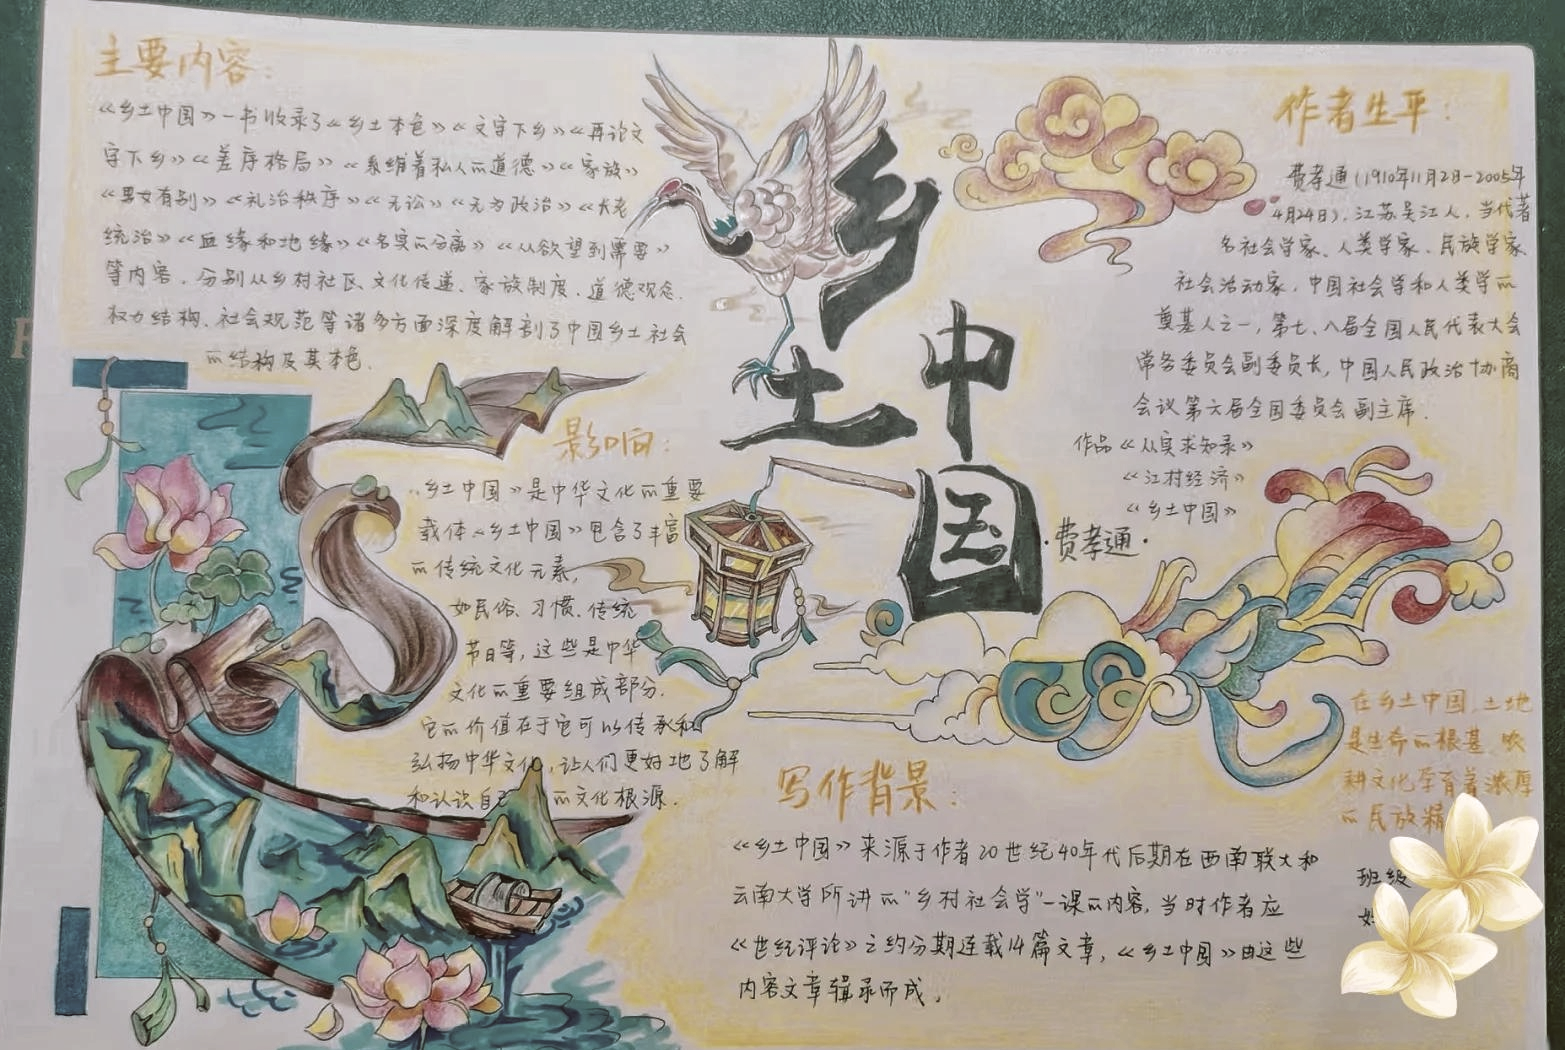 主要内容：
《乡土中国》一书收录了《乡土本色》《文字下乡》《再论文
字下乡》《差序格局》《系维着私人的道德》《家族》
《男女有别》《礼治秩序》《无讼》《无为政治》《长老
统治》《血缘和地缘》《名实的分离》《从欲望到需要》
等内容，分别从乡村社区、文化传递、家族制度、道德观念、
权力结构、社会规范等诸多方面深度解剖了中国乡土社会
的结构及其本色。
乡土中国
·费孝通·
作者生平：
费孝通（1910年11月2日-2005年
4月24日），江苏吴江人，当代著
名社会学家、人类学家、民族学家
社会活动家，中国社会学和人类学的
奠基人之一，第七、八届全国人民代表大会
常务委员会副委员长，中国人民政治协商
会议第六届全国委员会副主席．
作品《从实求知录》
《江村经济》
《乡土中国》
影响：
《乡土中国》是中华文化的重要
载体《乡土中国》包含了丰富
的传统文化元素，
如民俗、习惯、传统
节日等，这些是中华
文化的重要组成部分．
它的价值在于它可以传承和
弘扬中华文化，让人们更好地了解
和认识自己的文化根源．
写作背景：
《乡土中国》来源于作者20世纪40年代后期在西南联大和
云南大学所讲的"乡村社会学"一课的内容，当时作者应
《世纪评论》之约分期连载14篇文章，《乡土中国》由这些
内容文章辑录而成，
在乡土中国，土地
是生命的根基
耕文化孕育着浓厚
的民族精
班级